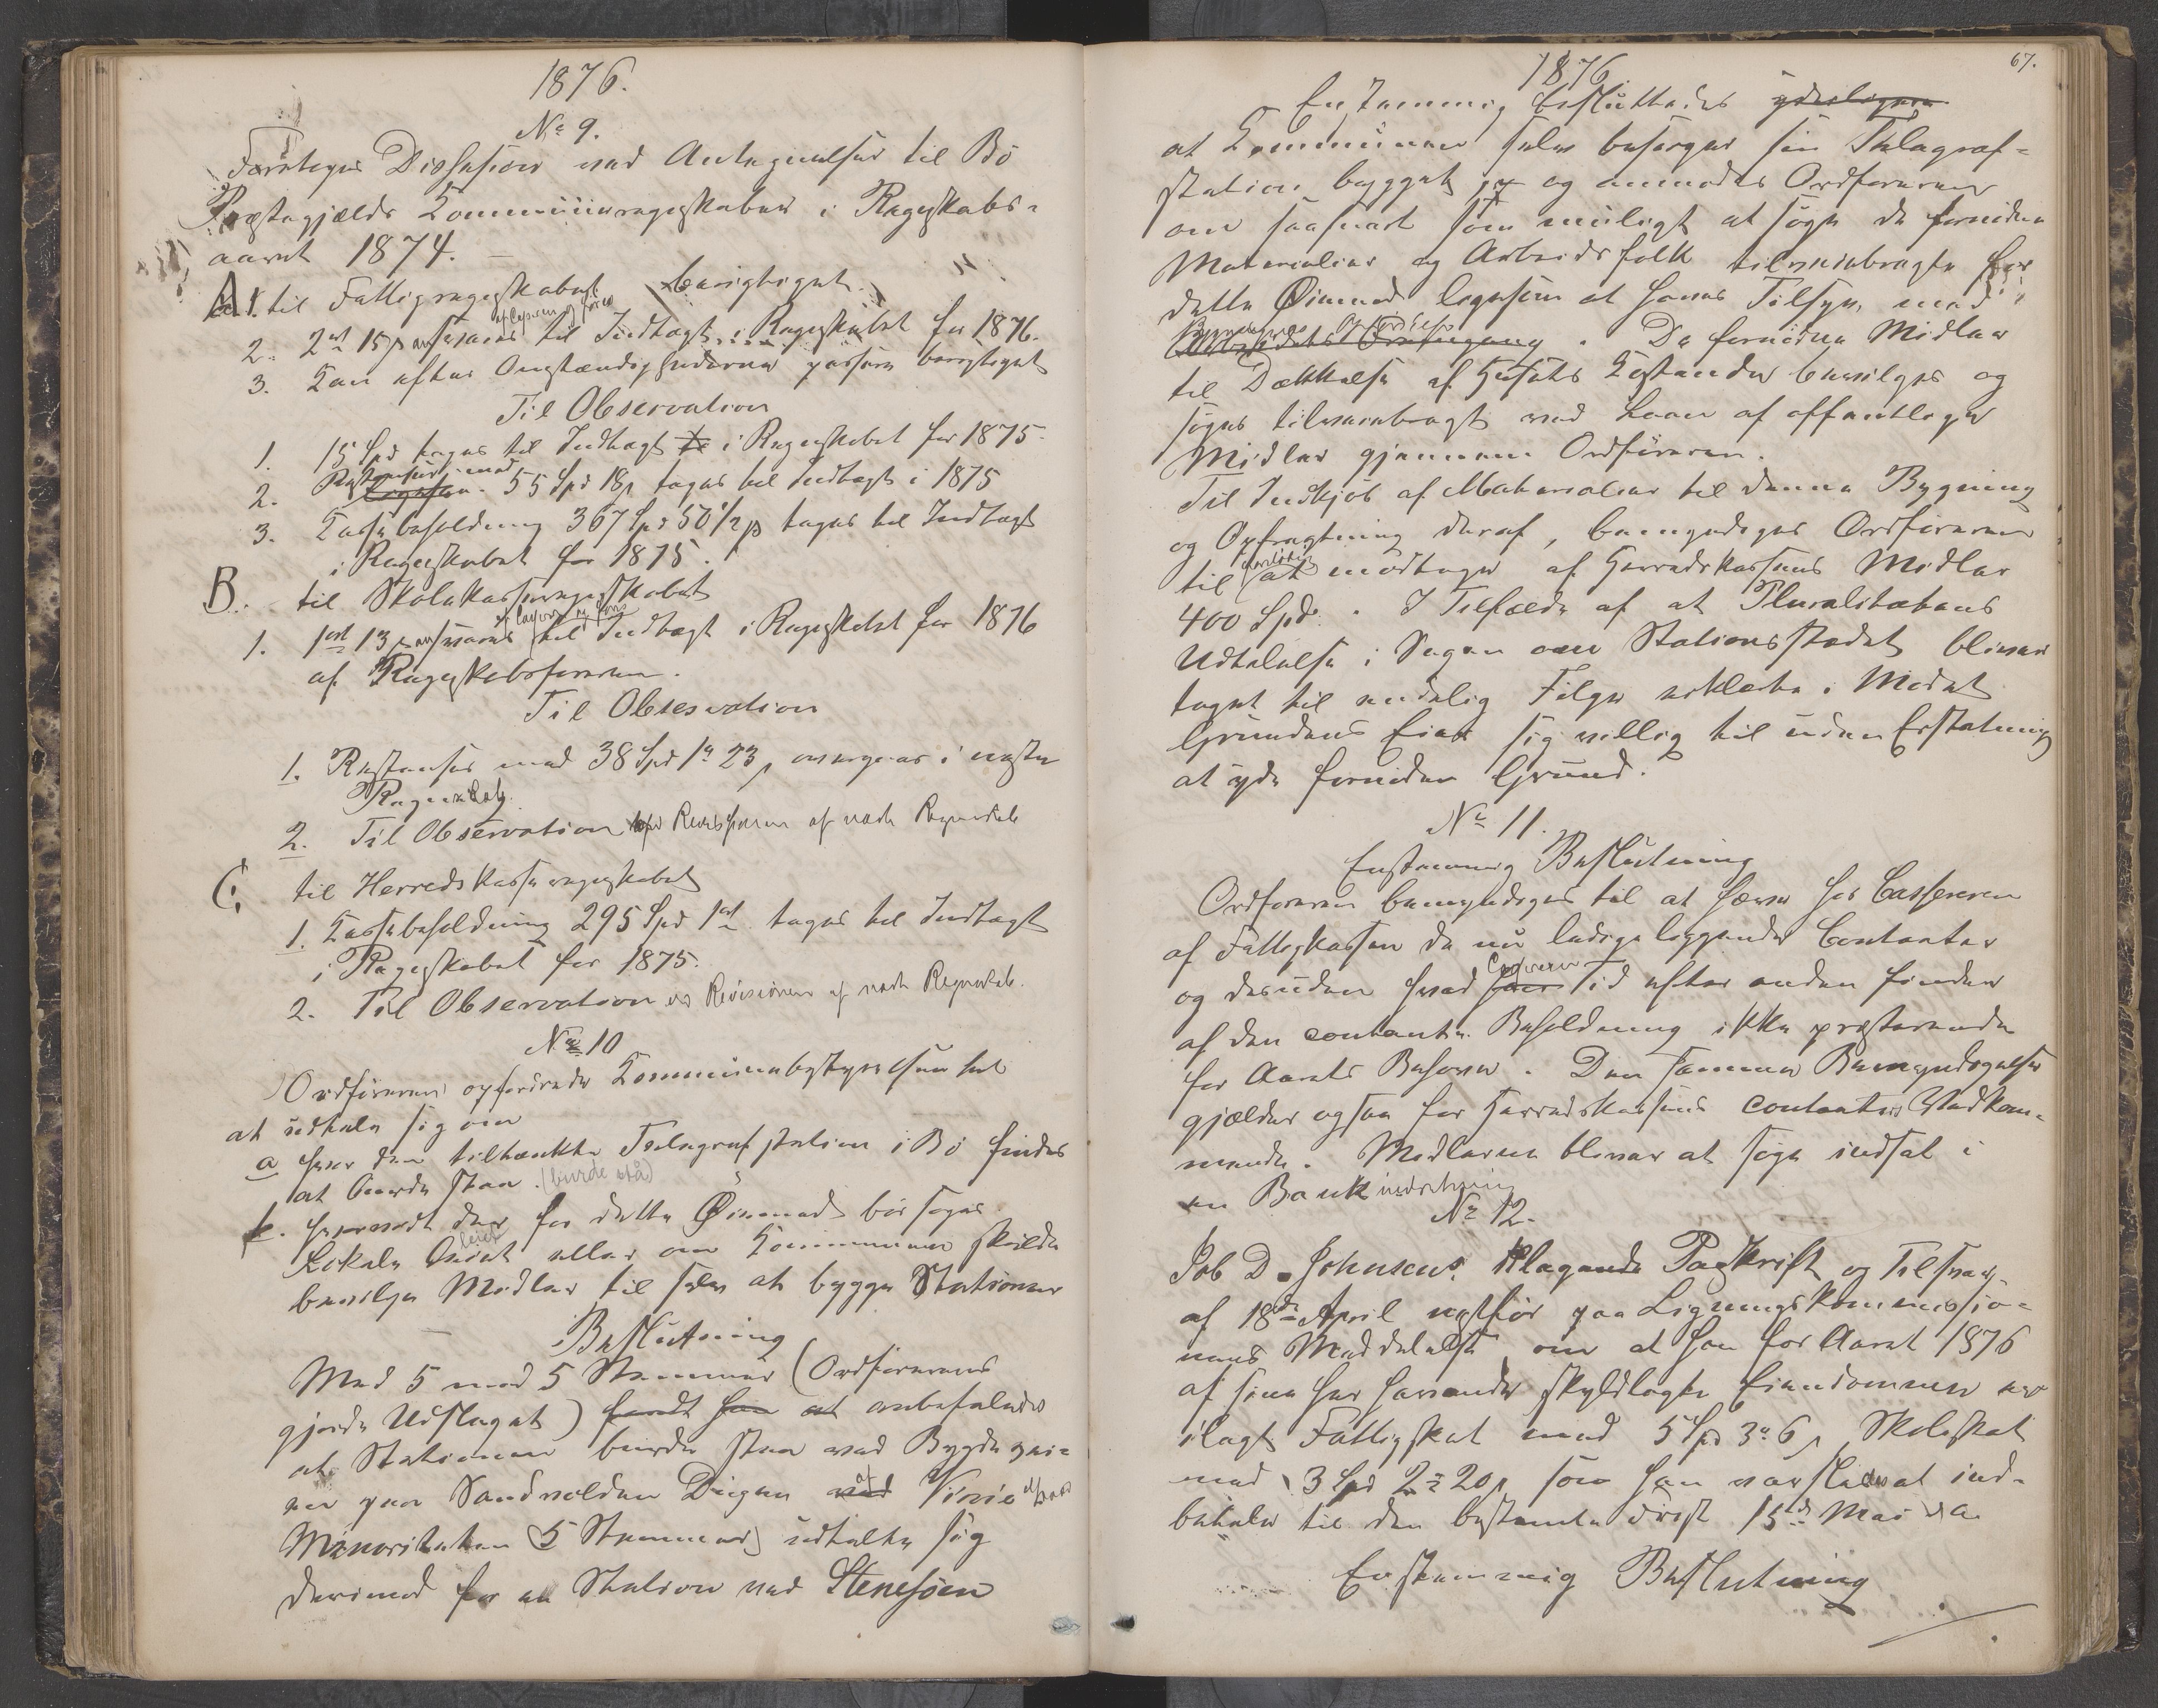 1876.
No 9.
Foretoges Desision ved Antegnelser til Bö
Præstegjelds Kommüneregnskaber i Regnskabs-
aaret 1874. —
A 1. til Fattigregnskabet berigtiget.
2. 2 ort 15 s ansvares til Indtægt i Regnskabet for 1876.
3. Kan efter Omstændighederne passere berigtiget
Til Observation
1. 15 Spd tages til Indtægt i Regnskabet for 1875.
2. Restantser med 55 Spd 18 s tages til Indtægt i 1875
3. Kassebeholdning 367 Spd 50 1/2 s tages til Indtægt
i Regnskabet for 1875.
B. til Skolekasseregnskabet
1. 1 ort 13 s ansvares til Indtægt i Regnskabet for 1876
af Regnskabsföreren.
Til Observation
1. Restantser med 38 Spd 1 o 23 s omsorges i neste
Regnskab.
2. Til Observation ved Revisionen af neste Regnskab
C. til Herredskasseregnskabet
1. Kassebeholdning 295 Spd 1 ort tages til Indtægt
i Regnskabet for 1875.
2. Til Observation ved Revisionen af neste Regnskab.
No 10
Ordföreren opfordrede Kommünebestyrelsen til
at udtale sig om
a hvor den tiltænkte Telegrafstation i Bö findes
at burde staa. (burde stå)
b. hvorvidt der for dette Öiemed bör söges
Lokale leiet eller om Kommunen skulde
bevilge Midler til selv at bygge Stationen
Beslutning
Med 5 mod 5 Stemmer (Ordförerens
gjorde Udslaget) fandt han at anbefaledes
at Stationen burde staa ved Bygdevei-
en paa Sandvolden Dungen af Vinie
Minoriteten (5 Stemmer) udtalte sig
derimod for en Station ved Stenesöen
67.
1876
Enstemmig besluttedes yderligere
at Kommunen selv besörger sin Telegraf-
station bygget og anmodes Ordföreren
om saasnart som muligt at söge de fornödne
Materialier og Arbeidsfolk tilveiebragte for
dette Öiemed ligesom at have Tilsyn med
Bygningens Opförelse. De fornödne Midler
til Dækkelse af Husets Kostende bevilges og
söges tilveiebragt ved Laan af offentlige
Midler gjennem Ordföreren.
Til Indkjöb af Materialier til denne Bygning
og Opfragtning deraf, bemyndiges Ordföreren
til foreløbig at modtage af Herredskassens Midler
400 Spd. I Tilfælde af at Pluralitetens
Udtalelse i Sagen om Stationsstedet bliver
taget til endelig Fölge erklærte i Mödet
Grundens Eier sig villig til uden Erstatning
at yde fornöden Grund.
No 11.
Enstemmig Beslutning
Ordföreren bemyndiges til at hæve hos Cassereren
af Fattigkassen de nu ledige liggende Contanter
og desuden hvad Cassereren Tid efter anden finder
af den contante Beholdning ikke præsterende
for Aarets Behov. Den samme Bemyndigelse
gjælder ogsaa for Herredskassens contanter Vedkom-
mende. Midlerne bliver at söge indsat i
en Bankindretning
No 12.
Job D. Johnsens klagende Paaskrift og Tilsvar,
af 18de April nestför paa Ligningskommissio-
nens Meddelelse, om at han for Aaret 1876
af sine her havende skyldlagte Eiendomme er
ilagt Fattigskat med 5 Spd 3 o 6 s Skoleskat
med 3 Spd 2 o 20 s som han varsledes at ind-
betale til den bestemte Frist 15de Mai d. a.
Enstemmig Beslutning